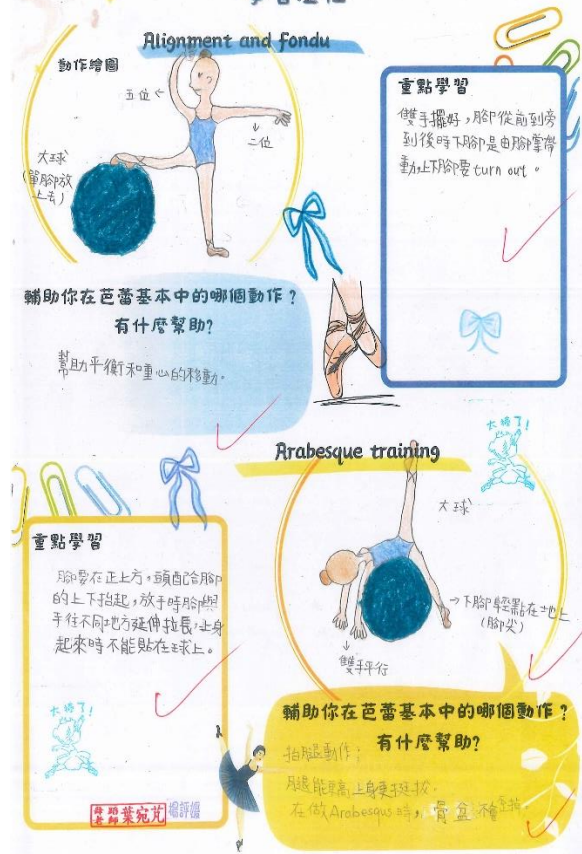 Alignment and fondu
動作繪圖
五位
二位
大球
(單腳放
上去)
重點學習
雙手擺好，腳從前到旁
到後時下腳是由腳掌帶
動，上下腳要 turn out。
輔助你在芭蕾基本中的哪個動作？
有什麼幫助?
幫助平衡和重心的移動。
Arabesque training
太棒了!
大球
下腳輕點在地上
(腳尖)
雙手平行
重點學習
腳要在正上方，頭配合腳
的上下抬起，放手時腳與
手往不同地方延伸拉長，上身
起來時不能貼在球上。
太棒了!
舞蹈
老師
葉宛芃
輔助你在芭蕾基本中的哪個動作？
有什麼幫助?
抬腿動作：
腿能更高上身更挺拔.
在做Arabesque時，骨盆不會